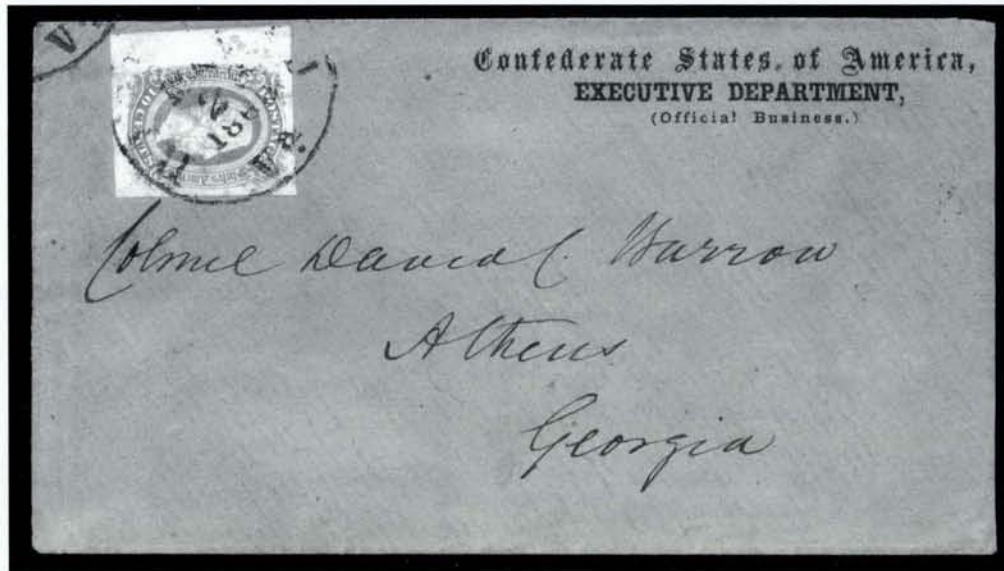 Confederate States, of America,
EXECUTIVE DEPARTMENT,
(Official Business.)
V
181
Colonel David C. Barrow
Athens
Georgia